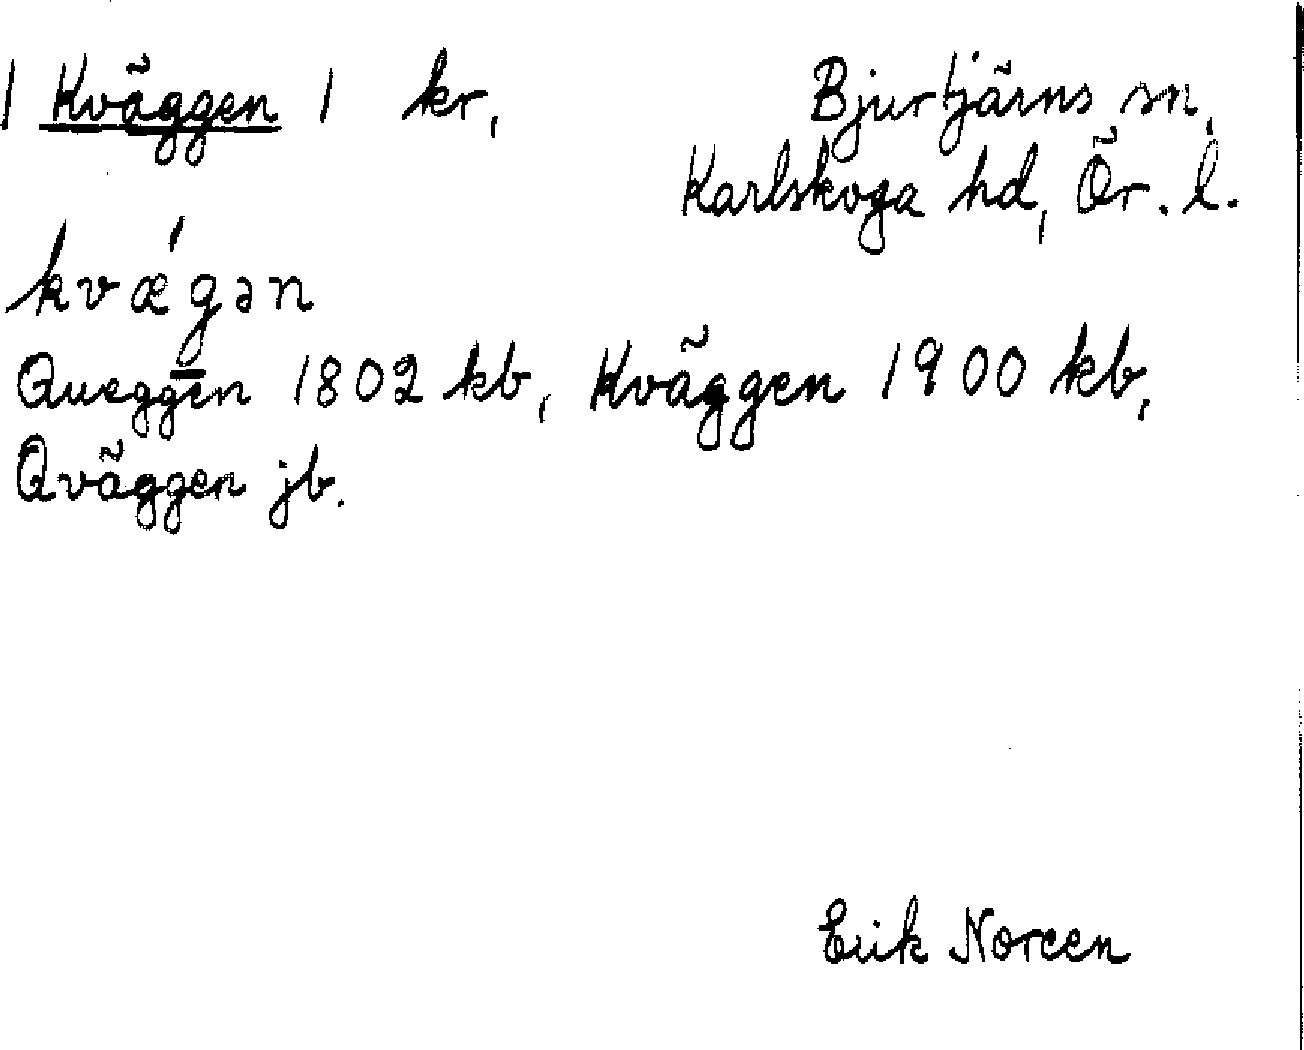 | Kväggen | kr, Bjurtjärns sn,
Karlskoga hd, Ör. l.
kvǽgən
Queggen 1802 kb, Kväggen 1900 kb,
Qväggen jb.
Erik Noreen